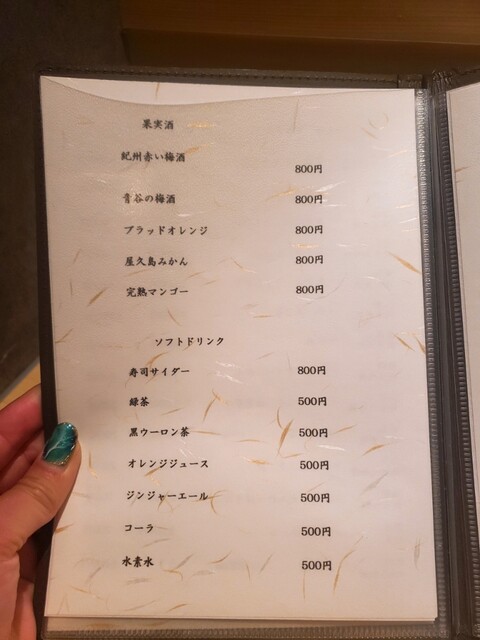 果実酒
紀州赤い梅酒 800円
青谷の梅酒 800円
ブラッドオレンジ 800円
屋久島みかん 800円
完熟マンゴー 800円
ソフトドリンク
寿司サイダー 800円
緑茶 500円
黒ウーロン茶 500円
オレンジジュース 500円
ジンジャーエール 500円
コーラ 500円
水素水 500円